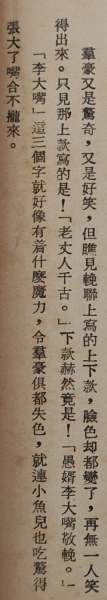 羣豪又是驚奇，又是好笑，但瞧見輓聯上寫的上下款，臉色却都變了，再無一人笑
得出來。只見那上款寫的是！「老丈人千古。」下款赫然竟是！「愚婿李大嘴敬輓。」
「李大嘴」這三個字就好像有着什麼魔力，令羣豪俱都失色，就連小魚兒也吃驚得
張大了嘴合不攏來。